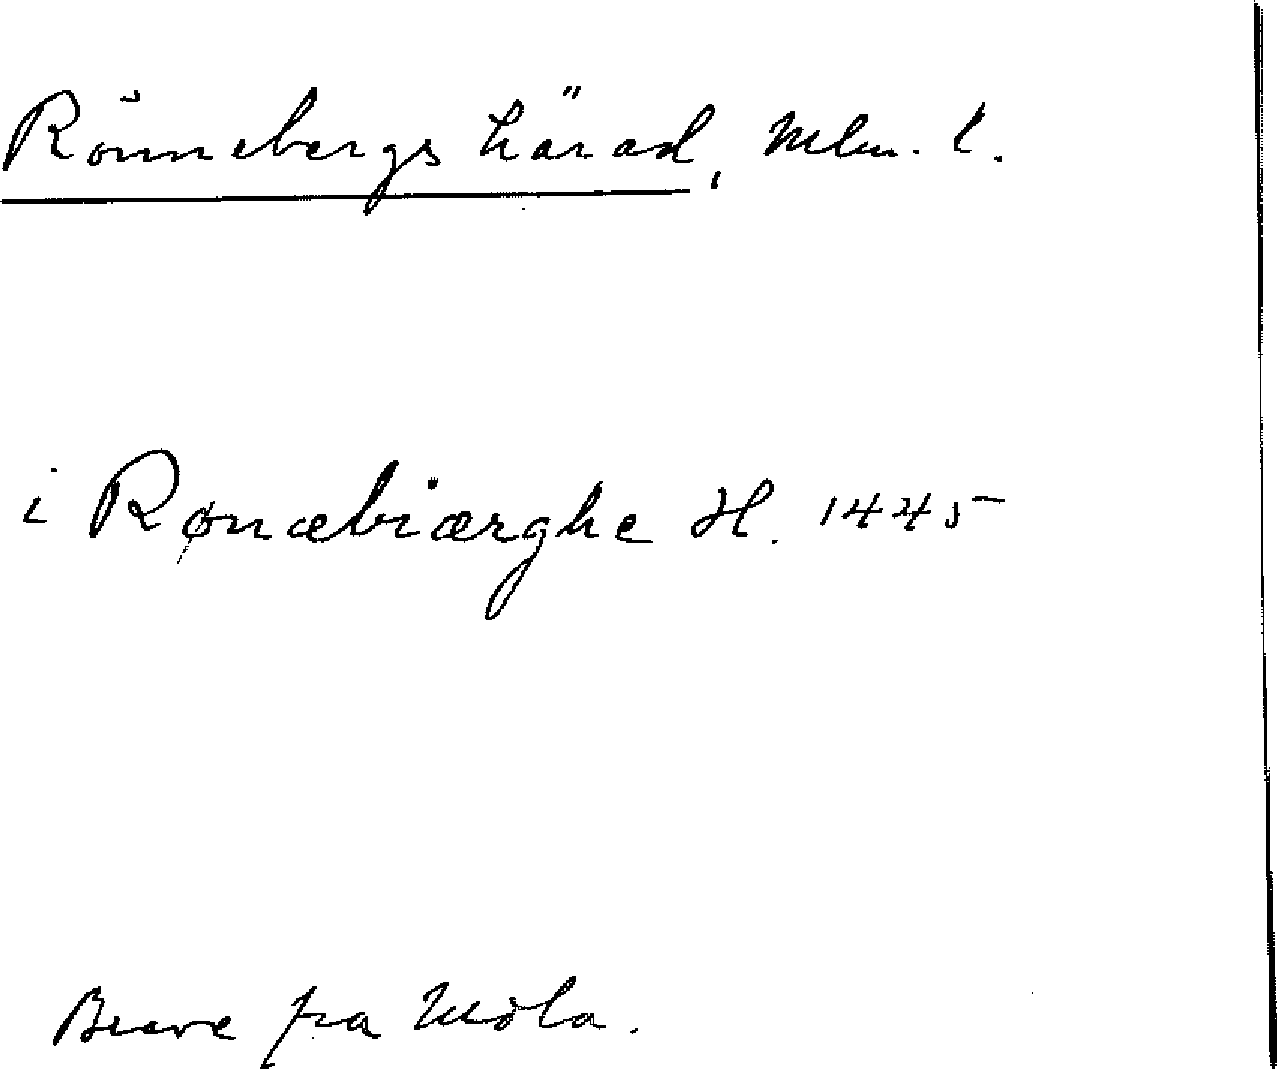 Rönnebergs härad, Mlm. l.
i Rønæbiærghe H. 1445
Breve fra